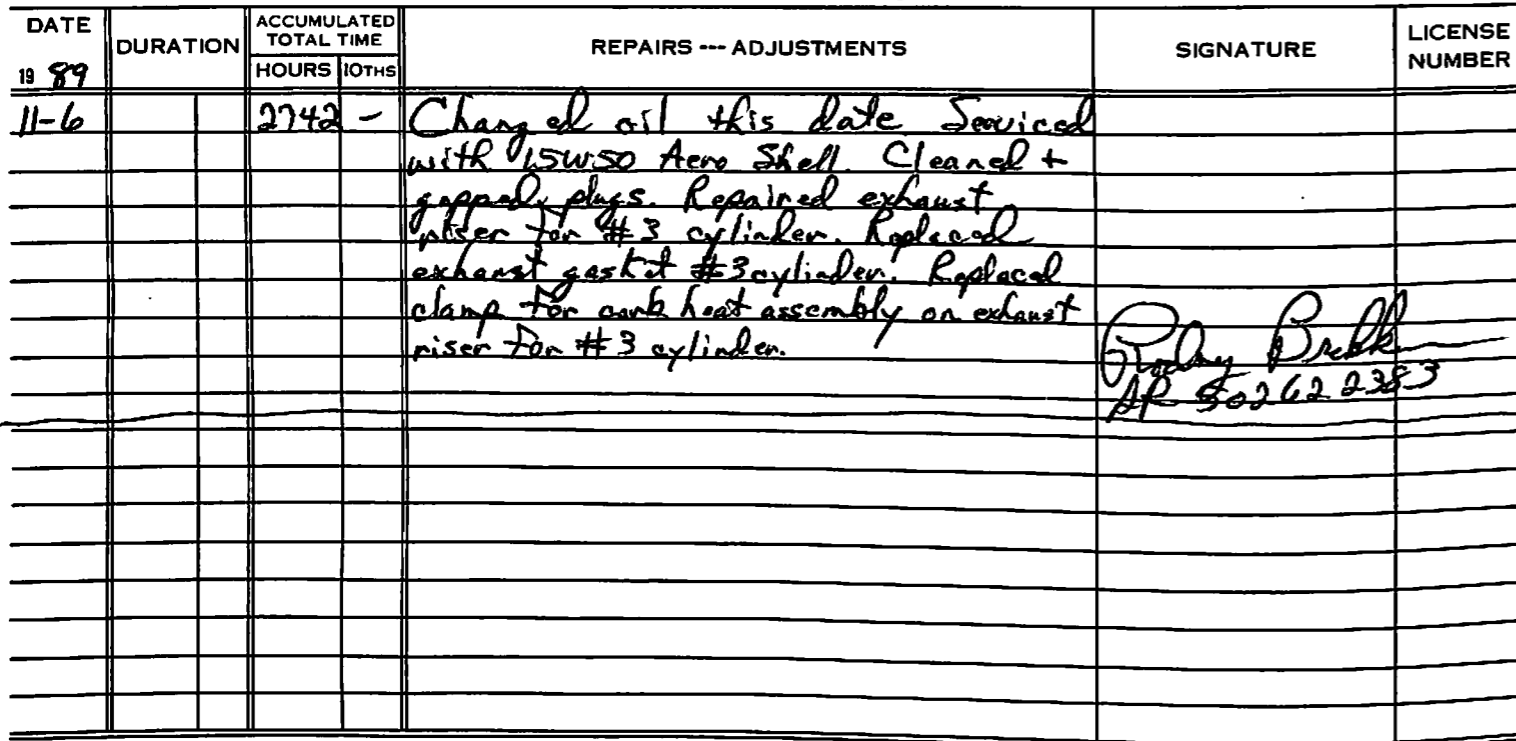 DATE DURATION ACCUMULATED TOTAL TIME REPAIRS --- ADJUSTMENTS SIGNATURE LICENSE NUMBER
19 89 HOURS 10THS
11-6 2742 - Changed oil this date Serviced
with 15W50 Aero Shell. Cleaned +
gapped plugs. Repaired exhaust
riser for #3 cylinder. Replaced
exhaust gasket #3 cylinder. Replaced
clamp for carb heat assembly on exhaust
riser for #3 cylinder.
Rodney
AP 502622383